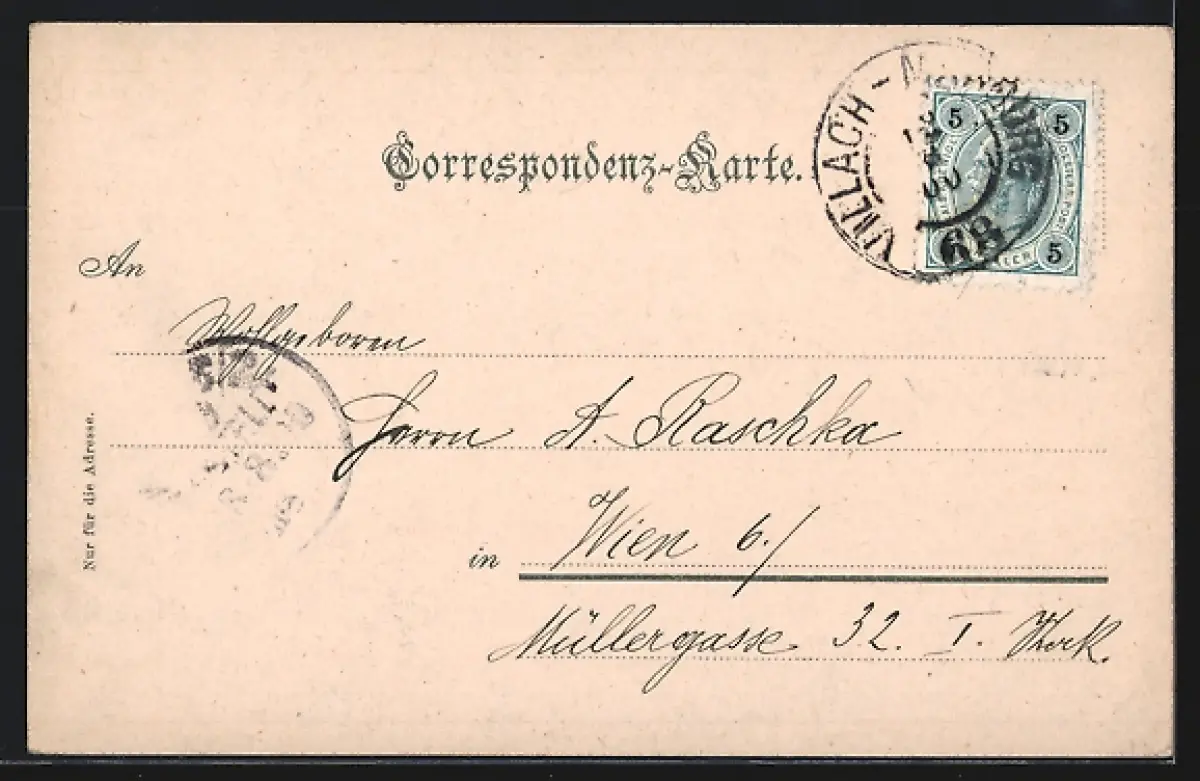 Correspondenz-Karte.
5 5
5
68
An
Wohlgeboren
Herrn A. Raschka
Nur für die Adresse.
in Wien 6./
Müllergasse 32. I. Stock.